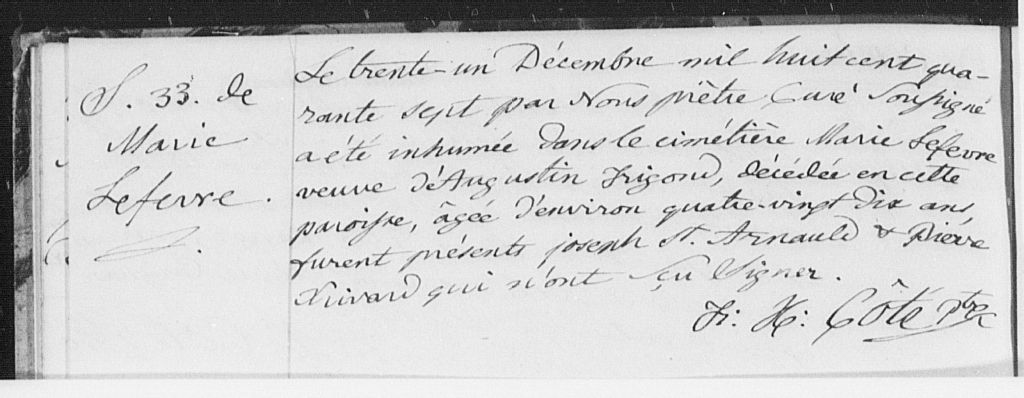 S. 33. de
Marie
Lefevre.
Le trente-un Décembre mil huit cent qua-
rante sept par Nous prêtre Curé Soussigné
a été inhumée dans le cimétière Marie Lefevre
veuve d'Augustin Frigond, décédée en cette
paroisse, âgée d'environ quatre-vingt dix ans,
furent présents joseph St. Arnauld & Pierre
Rivard qui n'ont sçu Signer.
H: Côté Ptre